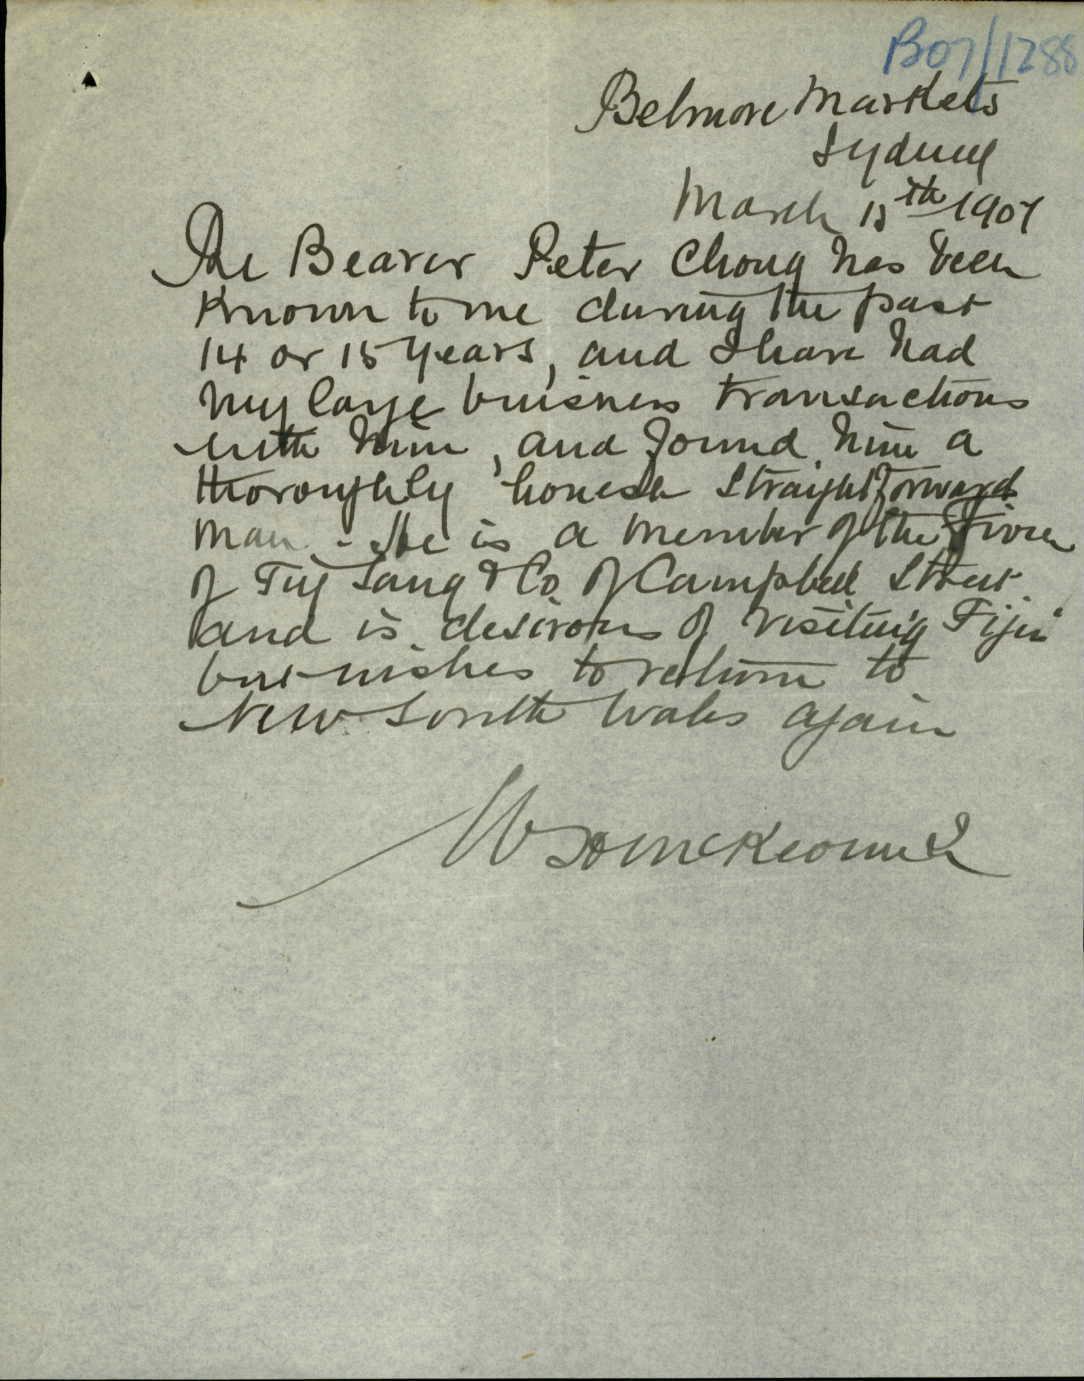 B07/1288
Belmore Markets
Sydney
March 15th 1907
The Bearer Peter Chong has been
known to me during the past
14 or 15 years, and I have had
very large buisness transactions
with him, and found him a
thoroughly honest straightforward
man - He is a member of the Firm
of Tiy Sang & Co of Campbell Street
and is desirous of visiting Fiji
but wishes to return to
New South Wales again